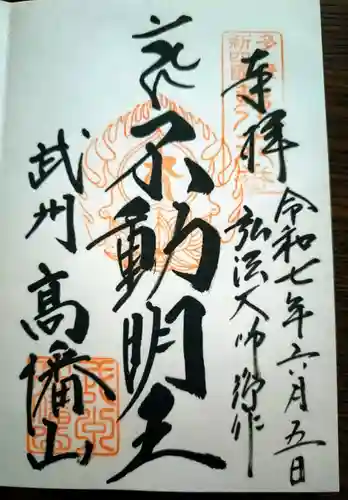 奉拝
令和七年六月五日
弘法大師御作
不動明王
武州
高幡山